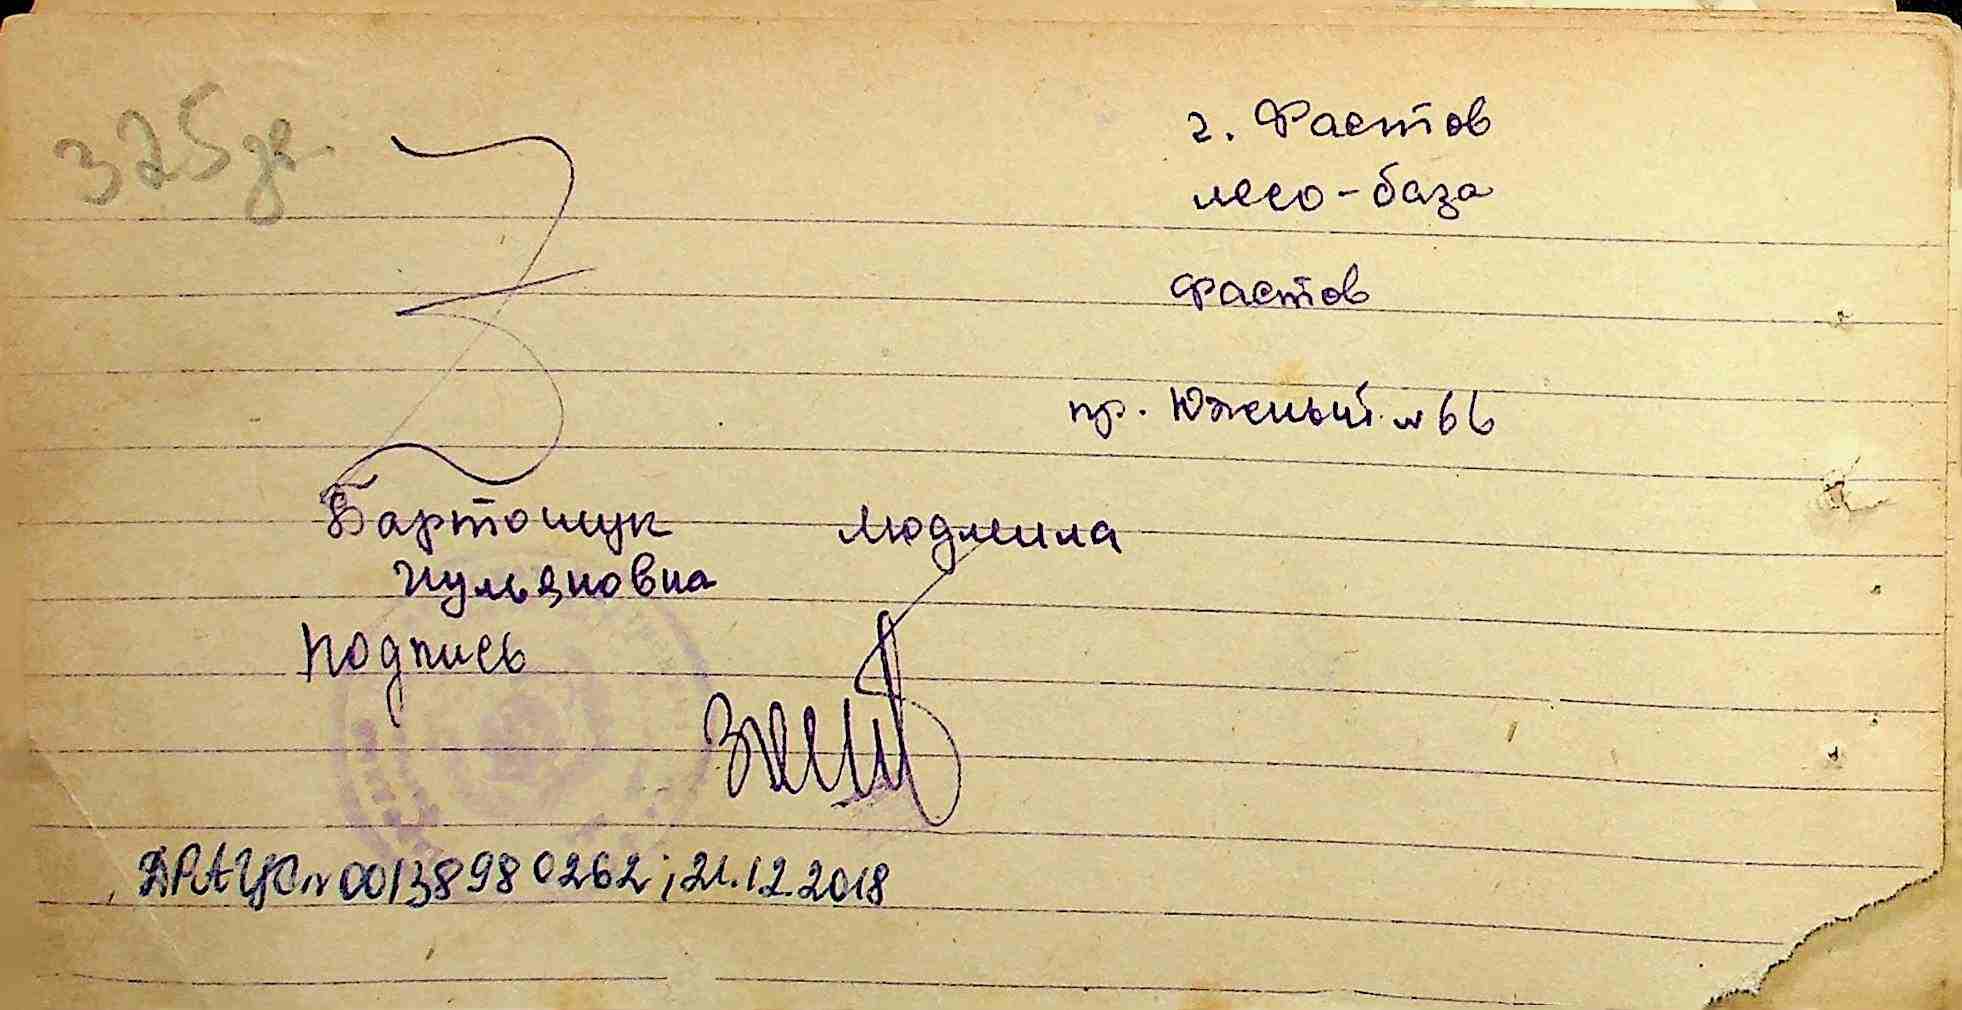 325 зв
г. Фастов
лесо-база
Фастов
пр. Южный № 66
Бартощук Людмила
Иульяновна
Подпись
ДРАЦС № 00138980262; 21.12.2018